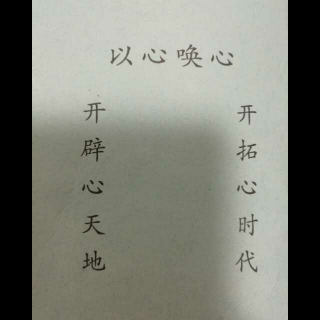 以心唤心
开辟心天地
开拓心时代